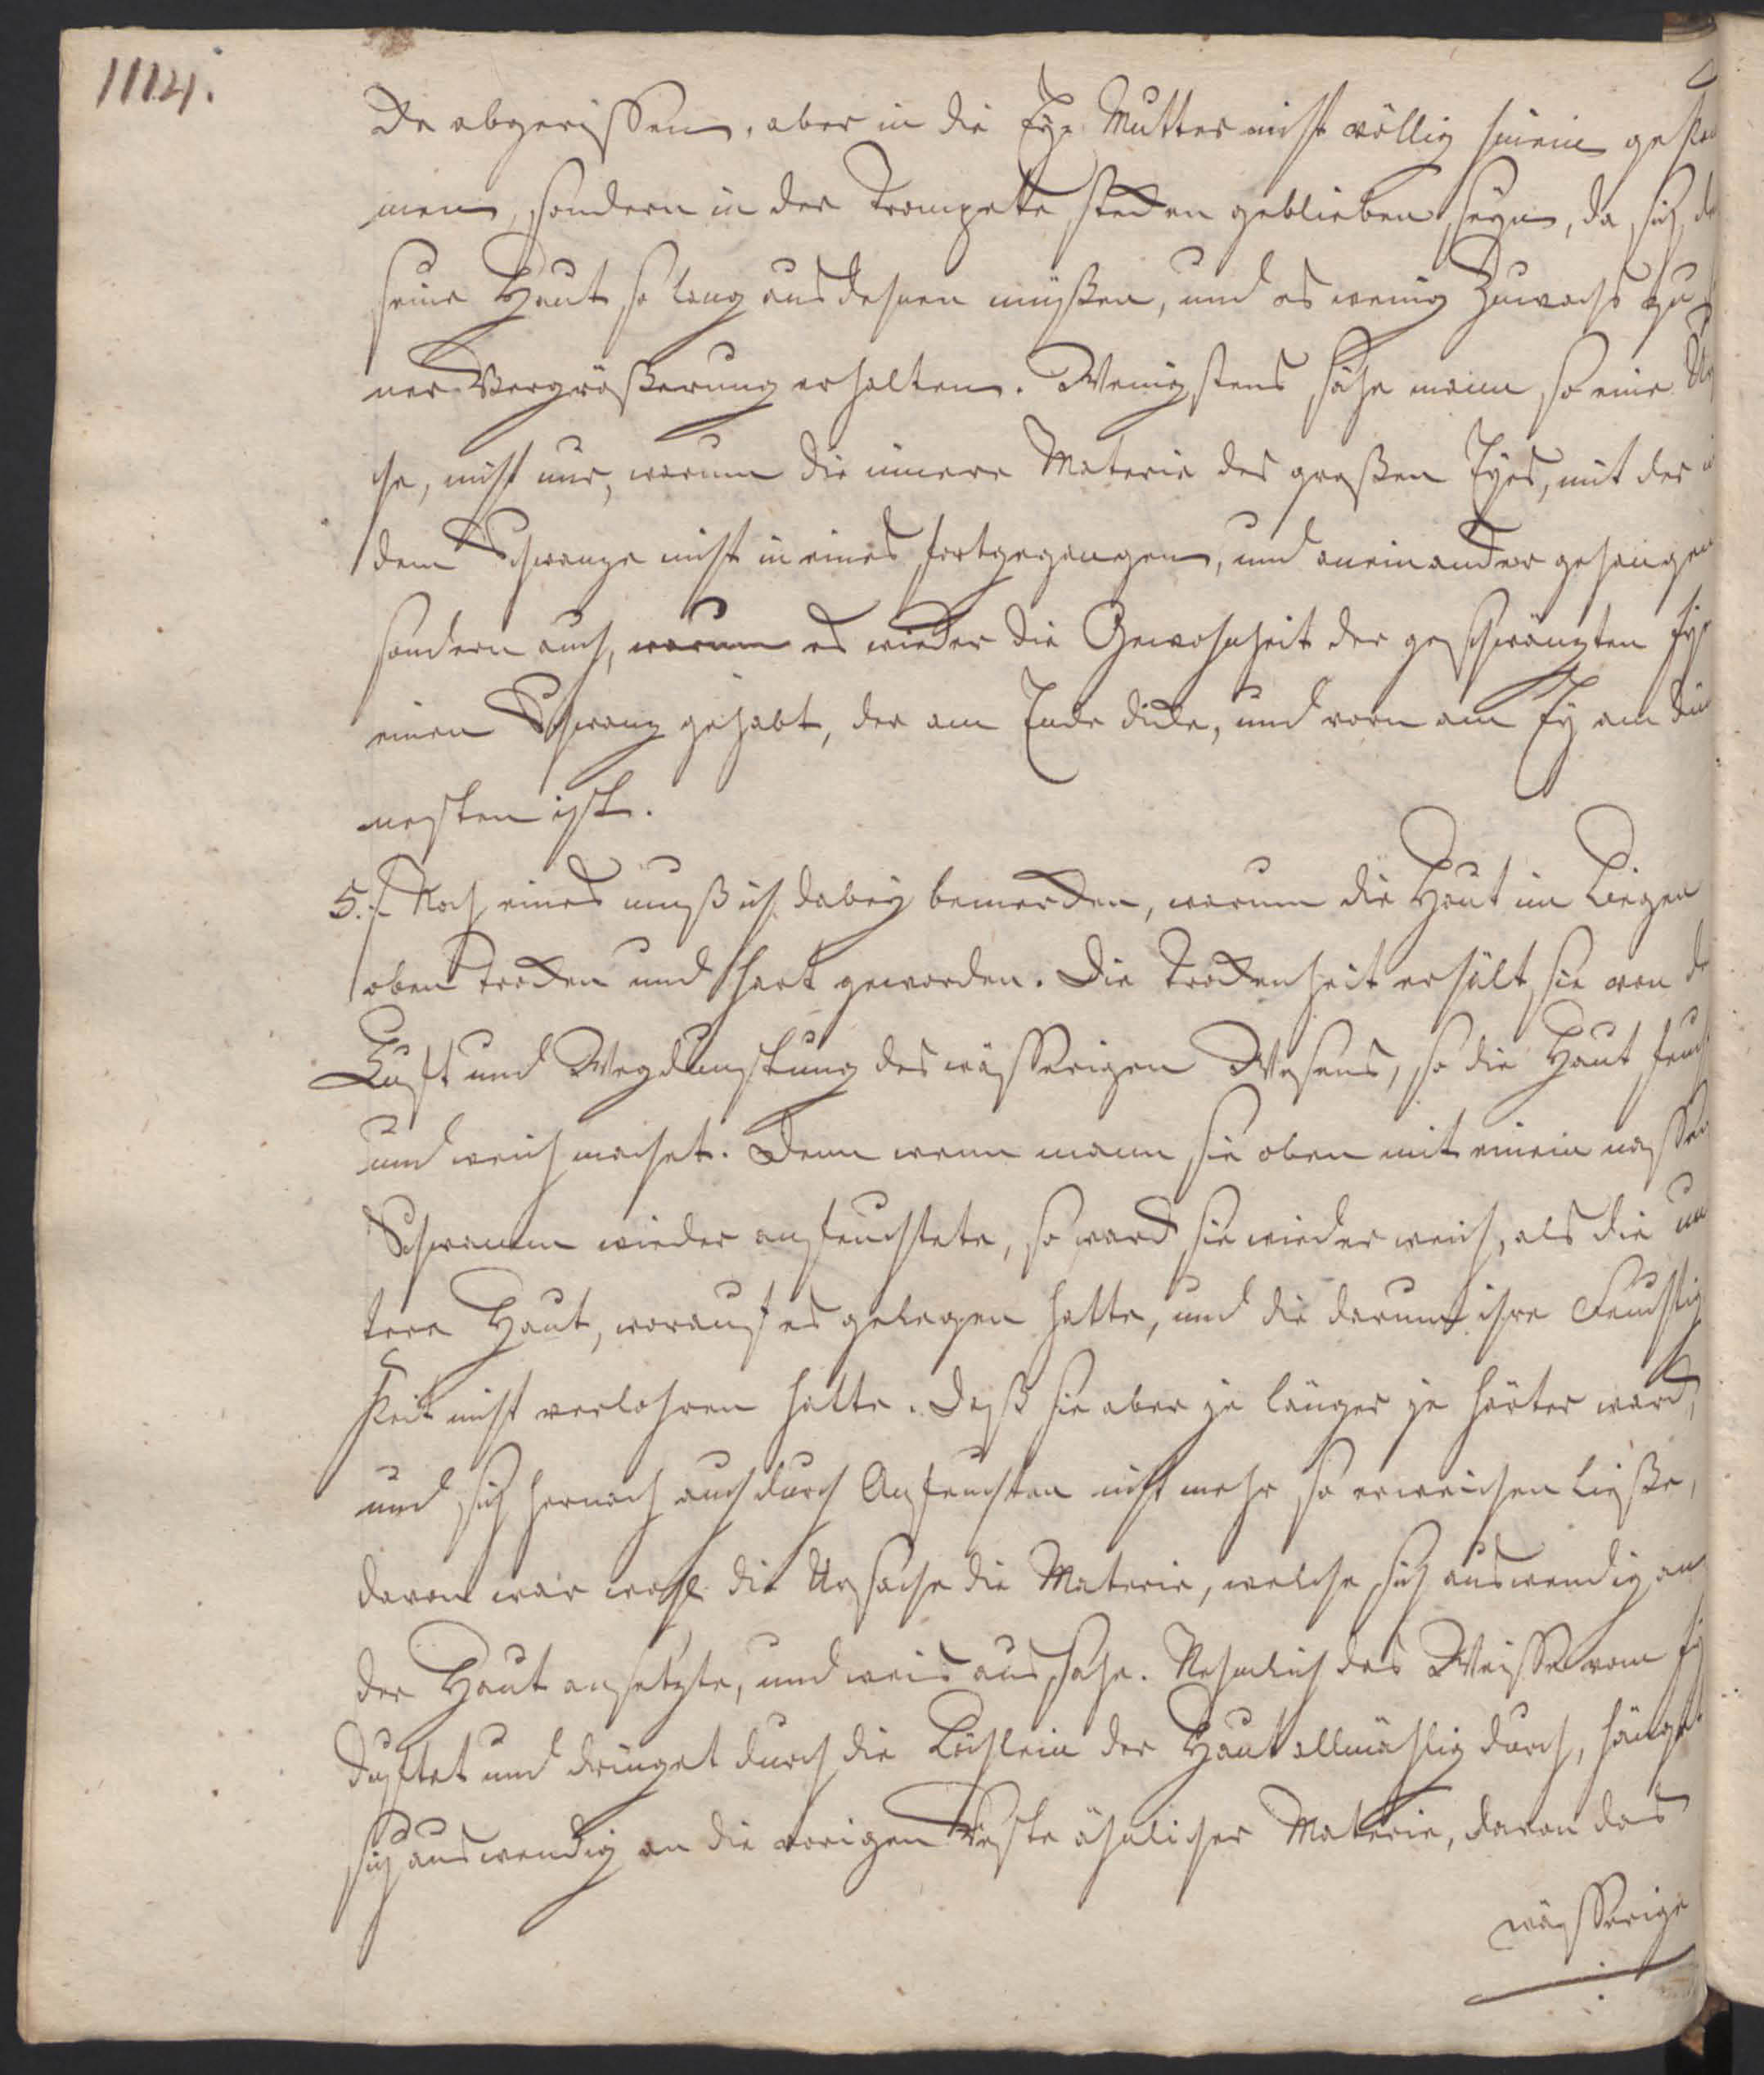 1114.
de abgerissen, aber in die Eÿe Mutter nicht völlig hinein gekom
men, sondern in der Trompette stecken geblieben seÿn, da sich d
seine Haut so lang ausdehnen müßen, und es wenig Zuwachs zu
ner Vergrößerung erhalten. Wenigstens sähe mann so eine Ur
che, nicht nur, warum die innere Materie des großen Eÿes, mit der
dem Schwanze nicht in eines fortgegangen, und aneinander gehangen
sondern auch, warum es wieder die Gewohnheit der geschwänzten Eÿe
einen Schwanz gehabt, der am Ende dicke, und vorn am Eÿ am dün
nesten ist.
5. Noch eines muß ich dabeÿ bemercken, warum die Haut im Liegen
oben trocken und hart geworden. Die Trockenheit erhält sie von d
Luft und Wegdunstung des wässerigen Wesens, so die Haut feuch
und weich machet. Denn wenn mann sie oben mit einem nassen
Schwamm wieder anfeuchtete, so ward sie wieder weich, als die un
tere Haut, worauf es gelegen hatte, und die darum ihre Feuchtig
keit nicht verlohren hatte. Daß sie aber je länger je härter ward,
und sich hernach auch durch Anfeuchten nicht mehr so erweichen ließe,
davon war wohl die Ursache die Materie, welche sich auswendig an
der Haut ansetzte, und weis aussahe. Nehmlich das Weisse vom Eÿ
duftet und dringet durch die Löchlein der Haut allmählig durch, hänget
sich auswendig an die vorigen Reste ähnlicher Materie, davon das
wässerige